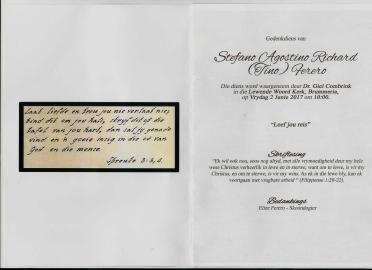 Laat liefde en trou jou nie verlaat nie;
bind dit om jou hals, skryf dit op die
tafel van jou hart, dan sal jy genade
vind en 'n goeie insig in die oë van
God en die mense.
Spreuke 3:3,4.
Gedenkdiens van
Stefano Agostino Richard
(Tino) Ferero
Die diens word waargeneem deur Dr. Giel Combrink
in die Lewende Woord Kerk, Brummeria,
op Vrydag 2 Junie 2017 om 10:00.
"Leef jou reis"
Skriflesing
"Ek wil ook nou, soos nog altyd, met alle vrymoedigheid deur my hele
wese Christus verheerlik in lewe en in sterwe, want om te lewe, is vir my
Christus, en om te sterwe, is vir my wins. As ek in die lewe bly, kan ek
voortgaan met vrugbare arbeid" (Filippense 1:20-22).
Bedankings
Elize Ferero - Skoondogter